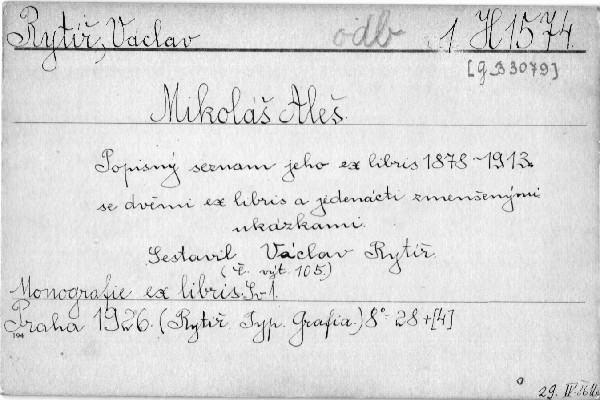 Rytíř, Václav odb 1 H 1574
[g B 3079]
Mikoláš Aleš.
Popisný seznam jeho ex libris 1878-1913.
se dvěmi ex libris a jedenácti zmenšenými
ukázkami.
Sestavil Václav Rytíř.
(Č. výt. 105.)
Monografie ex libris. Sv. 1.
Praha 1926. (Rytíř. Typ. Grafia.) 8° - 28+[4]
194
29. IV.